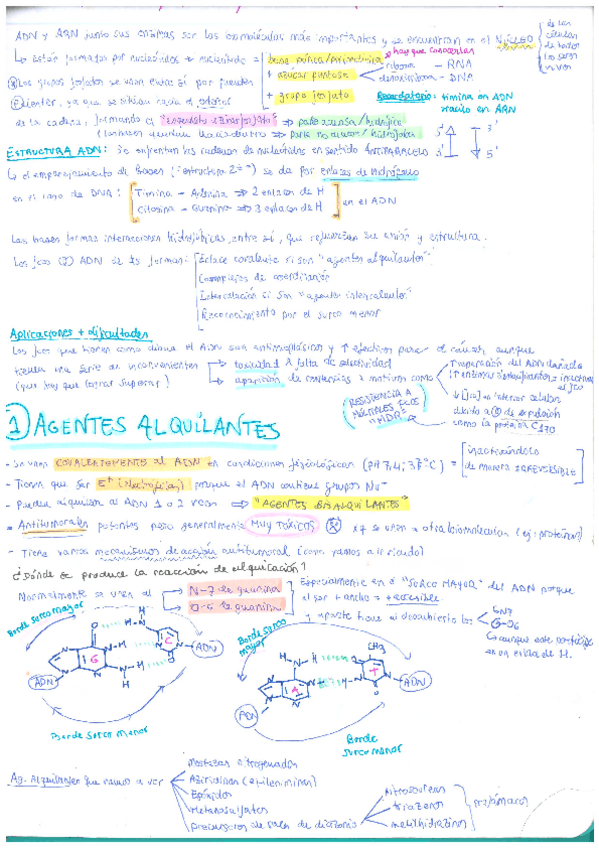 ADN y ARN junto sus enzimas son las biomoléculas más importantes y se encuentran en el NÚCLEO
de las células de todos los seres vivos
↳ están formados por nucleótidos → nucleótido =
base púrica/pirimidínica → hay que conocerlas
+ azúcar pentosa
ribosa - RNA
desoxirribosa - DNA
+ grupo fosfato
Recordatorio: timina en ADN
uracilo en ARN
Los grupos fosfatos se unen entre sí por puentes
diester, ya que se sitúan hacia el exterior
de la cadena, formando el "esqueleto azúcar fosfato" ⇒ parte acuosa/hidrófila
⇒ parte no acuosa/hidrófoba
ESTRUCTURA ADN: Se enfrentan las cadenas de nucleótidos en sentido ANTIPARALELO
5' 3'
3' 5'
↳ el emparejamiento de bases (estructura 2ª) se da por enlaces de hidrógeno
en el caso de DNA:
Timina - Adenina ⇒ 2 enlaces de H
Citosina - Guanina ⇒ 3 enlaces de H
en el ADN
Las bases forman interacciones hidrofóbicas entre sí, que refuerzan su unión y estructura.
Los fcos ADN de forman:
Enlace covalente si son "agentes alquilantes"
Complejos de coordinación
Intercalación si son "agentes intercalantes"
Reconocimiento por el surco menor
Aplicaciones + dificultades
Los fcos que tienen como diana el ADN son antineoplásicos y ↑ efectivos para el cáncer, aunque
tienen una serie de inconvenientes
(que hay que lograr superar)
toxicidad x falta de selectividad
aparición de resistencias x motivos como
RESISTENCIA A MÚLTIPLES FCOS "MDR"
↑ reparación del ADN dañado
↓ [fco] en interior celular
debido a de expulsión
como la proteína
1) AGENTES ALQUILANTES
- Se unen COVALENTEMENTE al ADN en condiciones fisiológicas (pH 7,4; 37°C) =
inactivándolo
de manera IRREVERSIBLE
- Tienen que ser E+ (electrófilos) porque el ADN contiene grupos Nu-
- Pueden alquilar al ADN 1 o 2 veces ⇒ "AGENTES BISALQUILANTES"
- Antitumorales potentes pero generalmente MUY TÓXICOS xq se unen a otras biomoléculas (ej: proteínas)
- Tiene varios mecanismos de acción antitumoral (como vamos a ir viendo)
¿Dónde se produce la reacción de alquilación?
Normalmente se unen al
N-7 de guanina
O-6 de guanina
Especialmente en el "SURCO MAYOR" del ADN porque
al ser + ancho = + accesible.
+ aparte tiene al descubierto los
GN7
G-O6
aunque este participe
en un enlace de H.
Borde surco mayor
G
C
ADN
ADN
Borde surco menor
Borde surco mayor
CH3
A
T
ADN
ADN
Borde surco menor
Ag. Alquilantes que vamos a ver
Mostazas nitrogenadas
Aziridinas (etileniminas)
Epóxidos
Metanosulfatos
Precursores de sales de diazonio
Nitrosoureas
triazenos
metilhidrazinas
profármacos